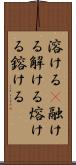 溶ける × 融け
る解ける熔け
る鎔ける